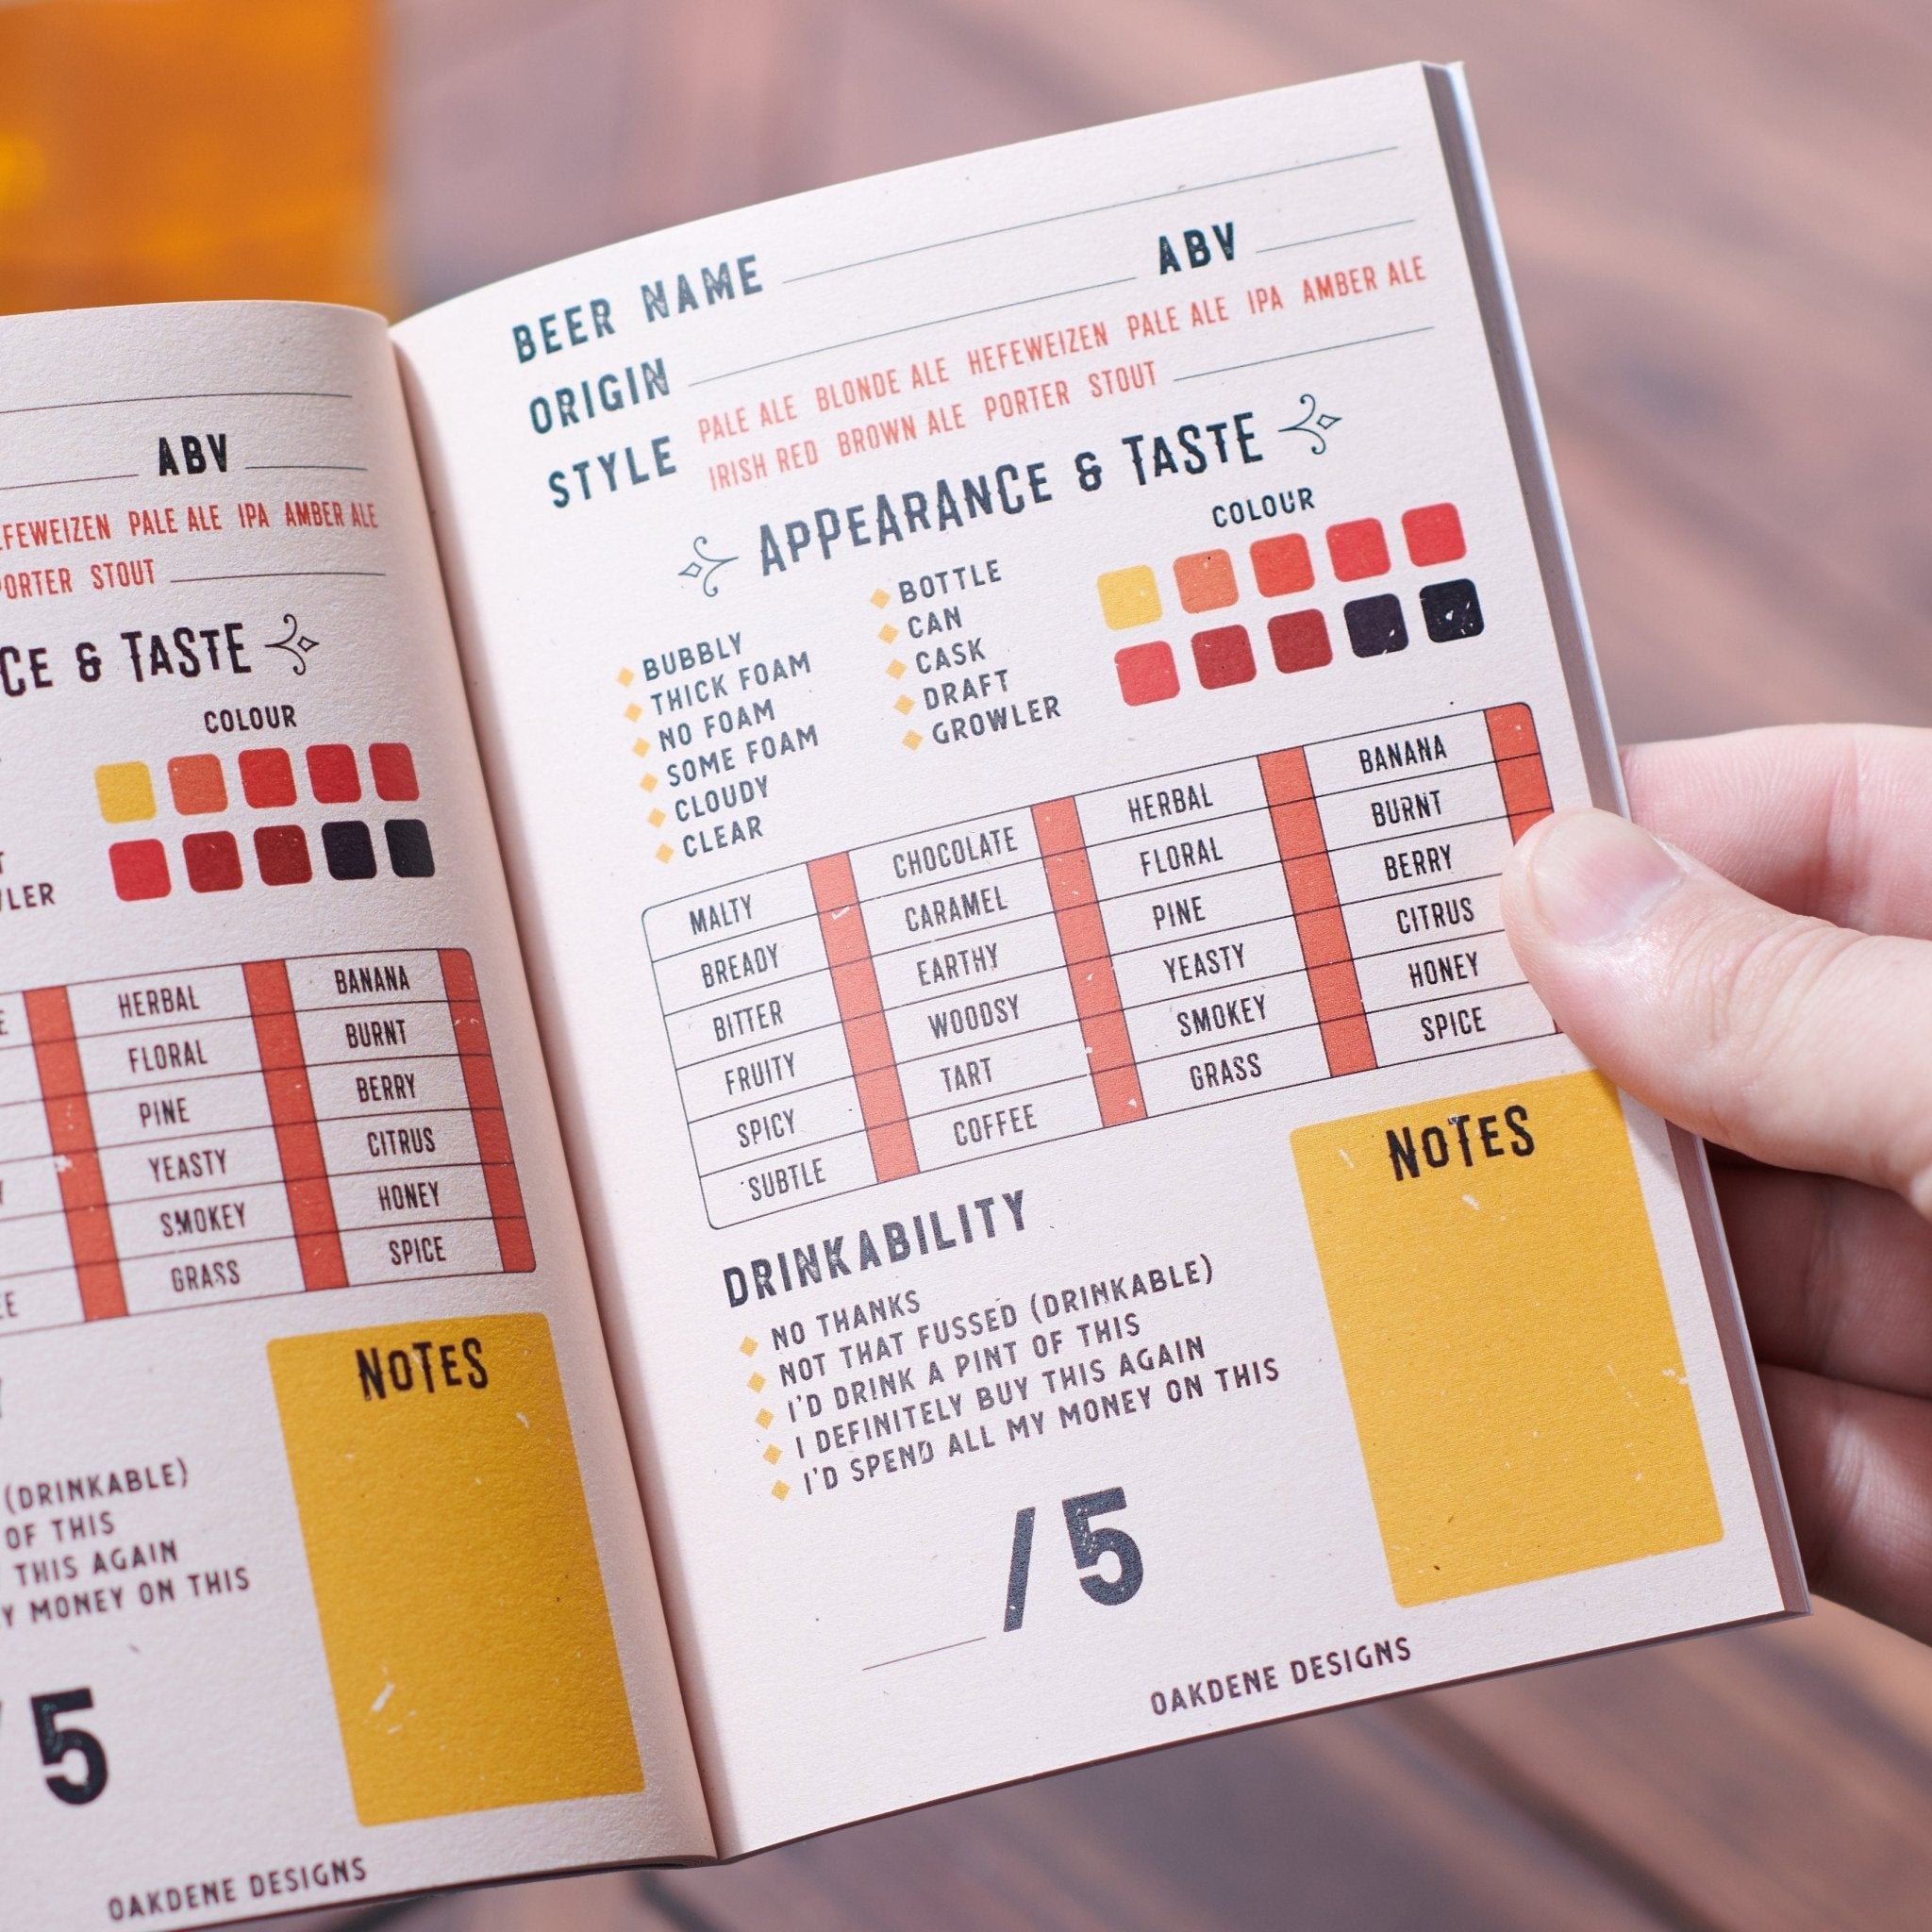 ABV
HEFEWEIZEN PALE ALE IPA AMBER ALE
PORTER STOUT
& TASTE
COLOUR
HERBAL BANANA
FLORAL BURNT
PINE BERRY
YEASTY CITRUS
SMOKEY HONEY
GRASS SPICE
NOTES
(DRINKABLE)
OF THIS
THIS AGAIN
MONEY ON THIS
/5
OAKDENE DESIGNS
BEER NAME
ORIGIN ABV
STYLE PALE ALE BLONDE ALE HEFEWEIZEN PALE ALE IPA AMBER ALE
IRISH RED BROWN ALE PORTER STOUT
APPEARANCE & TASTE
BUBBLY
THICK FOAM
NO FOAM
SOME FOAM
CLOUDY
CLEAR
BOTTLE
CAN
CASK
DRAFT
GROWLER
COLOUR
MALTY CHOCOLATE HERBAL BANANA
BREADY CARAMEL FLORAL BURNT
BITTER EARTHY PINE BERRY
FRUITY WOODSY YEASTY CITRUS
SPICY TART SMOKEY HONEY
SUBTLE COFFEE GRASS SPICE
DRINKABILITY
NO THANKS
NOT THAT FUSSED (DRINKABLE)
I'D DRINK A PINT OF THIS
I DEFINITELY BUY THIS AGAIN
I'D SPEND ALL MY MONEY ON THIS
NOTES
/5
OAKDENE DESIGNS